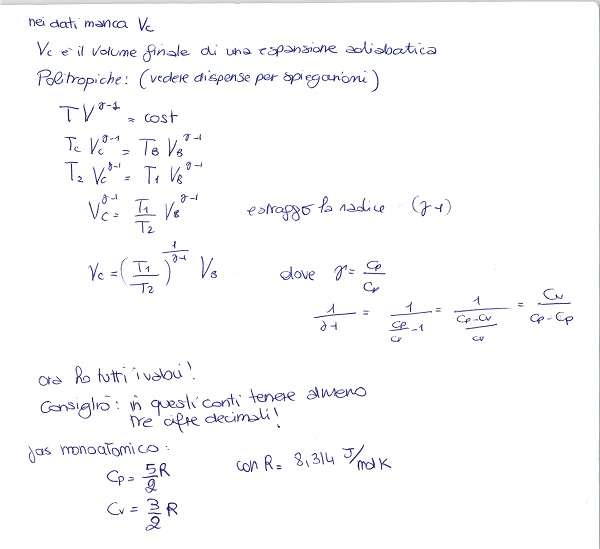 nei dati manca Vc
Vc è il volume finale di una espansione adiabatica
Politropiche: (vedere dispense per spiegazioni)
TV^γ-1 = cost
Tc Vc^γ-1 = TB VB^γ-1
T2 Vc^γ-1 = T1 VB^γ-1
Vc^γ-1 = T1/T2 VB^γ-1 estraggo la radice (γ-1)
Vc = (T1/T2)^1/γ-1 VB dove γ = cp/cv
1/γ-1 = 1/(cp/cv - 1) = 1/((cp-cv)/cv) = cv/(cp-cp)
ora ho tutti i valori!
Consiglio: in questi conti tenere almeno
tre cifre decimali!
gas monoatomico:
Cp = 5/2 R con R = 8,314 J/mol K
Cv = 3/2 R